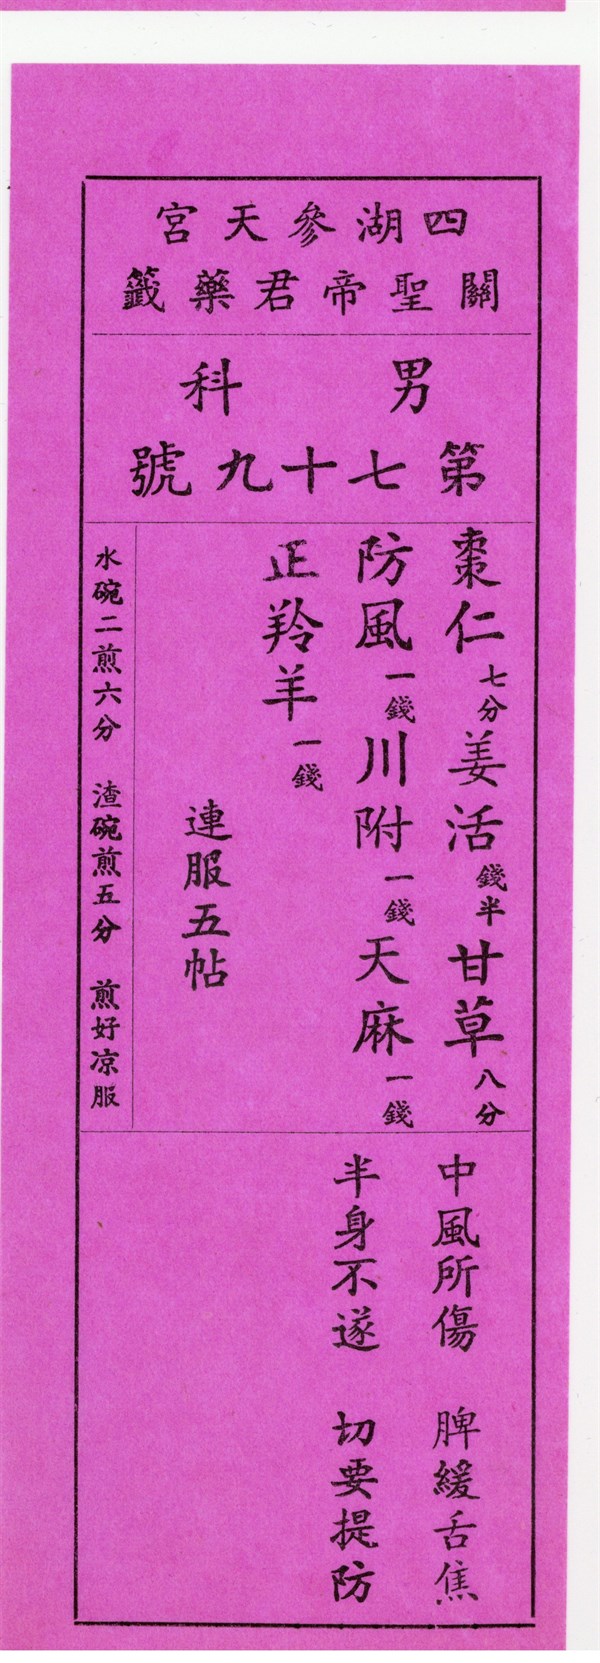 四湖參天宮
關聖帝君藥籤
男科
第七十九號
棗仁七分姜活錢半甘草八分
防風一錢川附一錢天麻一錢
正羚羊一錢
連服五帖
水碗二煎六分 渣碗煎五分 煎好凉服
中風所傷 脾緩舌焦
半身不遂 切要提防